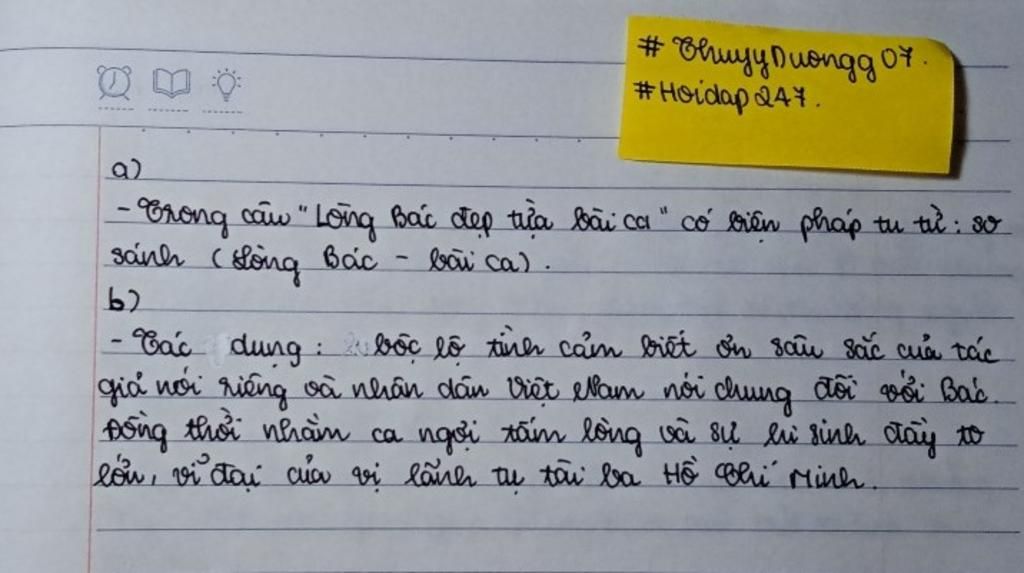 # ThuyyDuongg07.
#Hoidap247.
a)
- Trong câu "Lòng Bác đẹp tựa bài ca" có biện pháp tu từ: so
sánh (Lòng Bác - bài ca).
b)
- Tác dụng: bộc lộ tình cảm biết ơn sâu sắc của tác
giả nói riêng và nhân dân Việt Nam nói chung đối với Bác.
Đồng thời nhằm ca ngợi tấm lòng và sự hi sinh đầy to
lớn, vĩ đại của vị lãnh tụ tài ba Hồ Chí Minh.